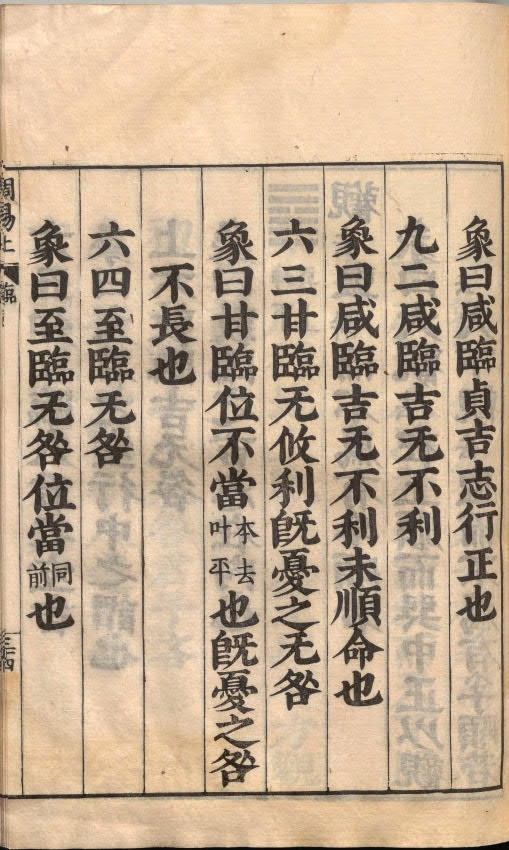 象曰咸臨貞吉志行正也
九二咸臨吉无不利
象曰咸臨吉无不利未順命也
六三甘臨无攸利既憂之无咎
象曰甘臨位不當本去叶平也既憂之咎
不長也
六四至臨无咎
象曰至臨无咎位當同前也
周易上
臨